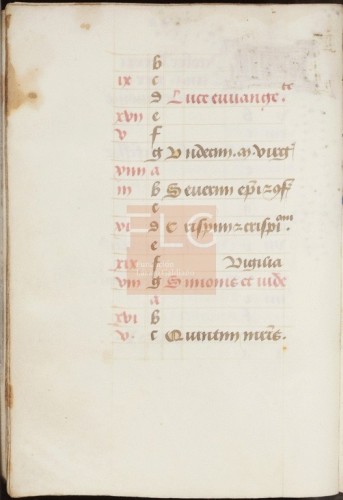 b
ix c
d Luce euuange.te
xvii e
v f
g Undecim .m. virgͫ
viiii a
iii b Seuerini ep̄i ⁊ 9f̄.
c
vi d Crispini ⁊ crispi.ani
e
xix f Vigilia
viii g Simonis et iude
a
xvi b
v. c Quintini mr̄is.